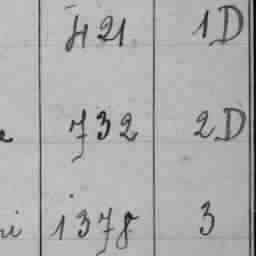 421 1D
732 2D
1378 3